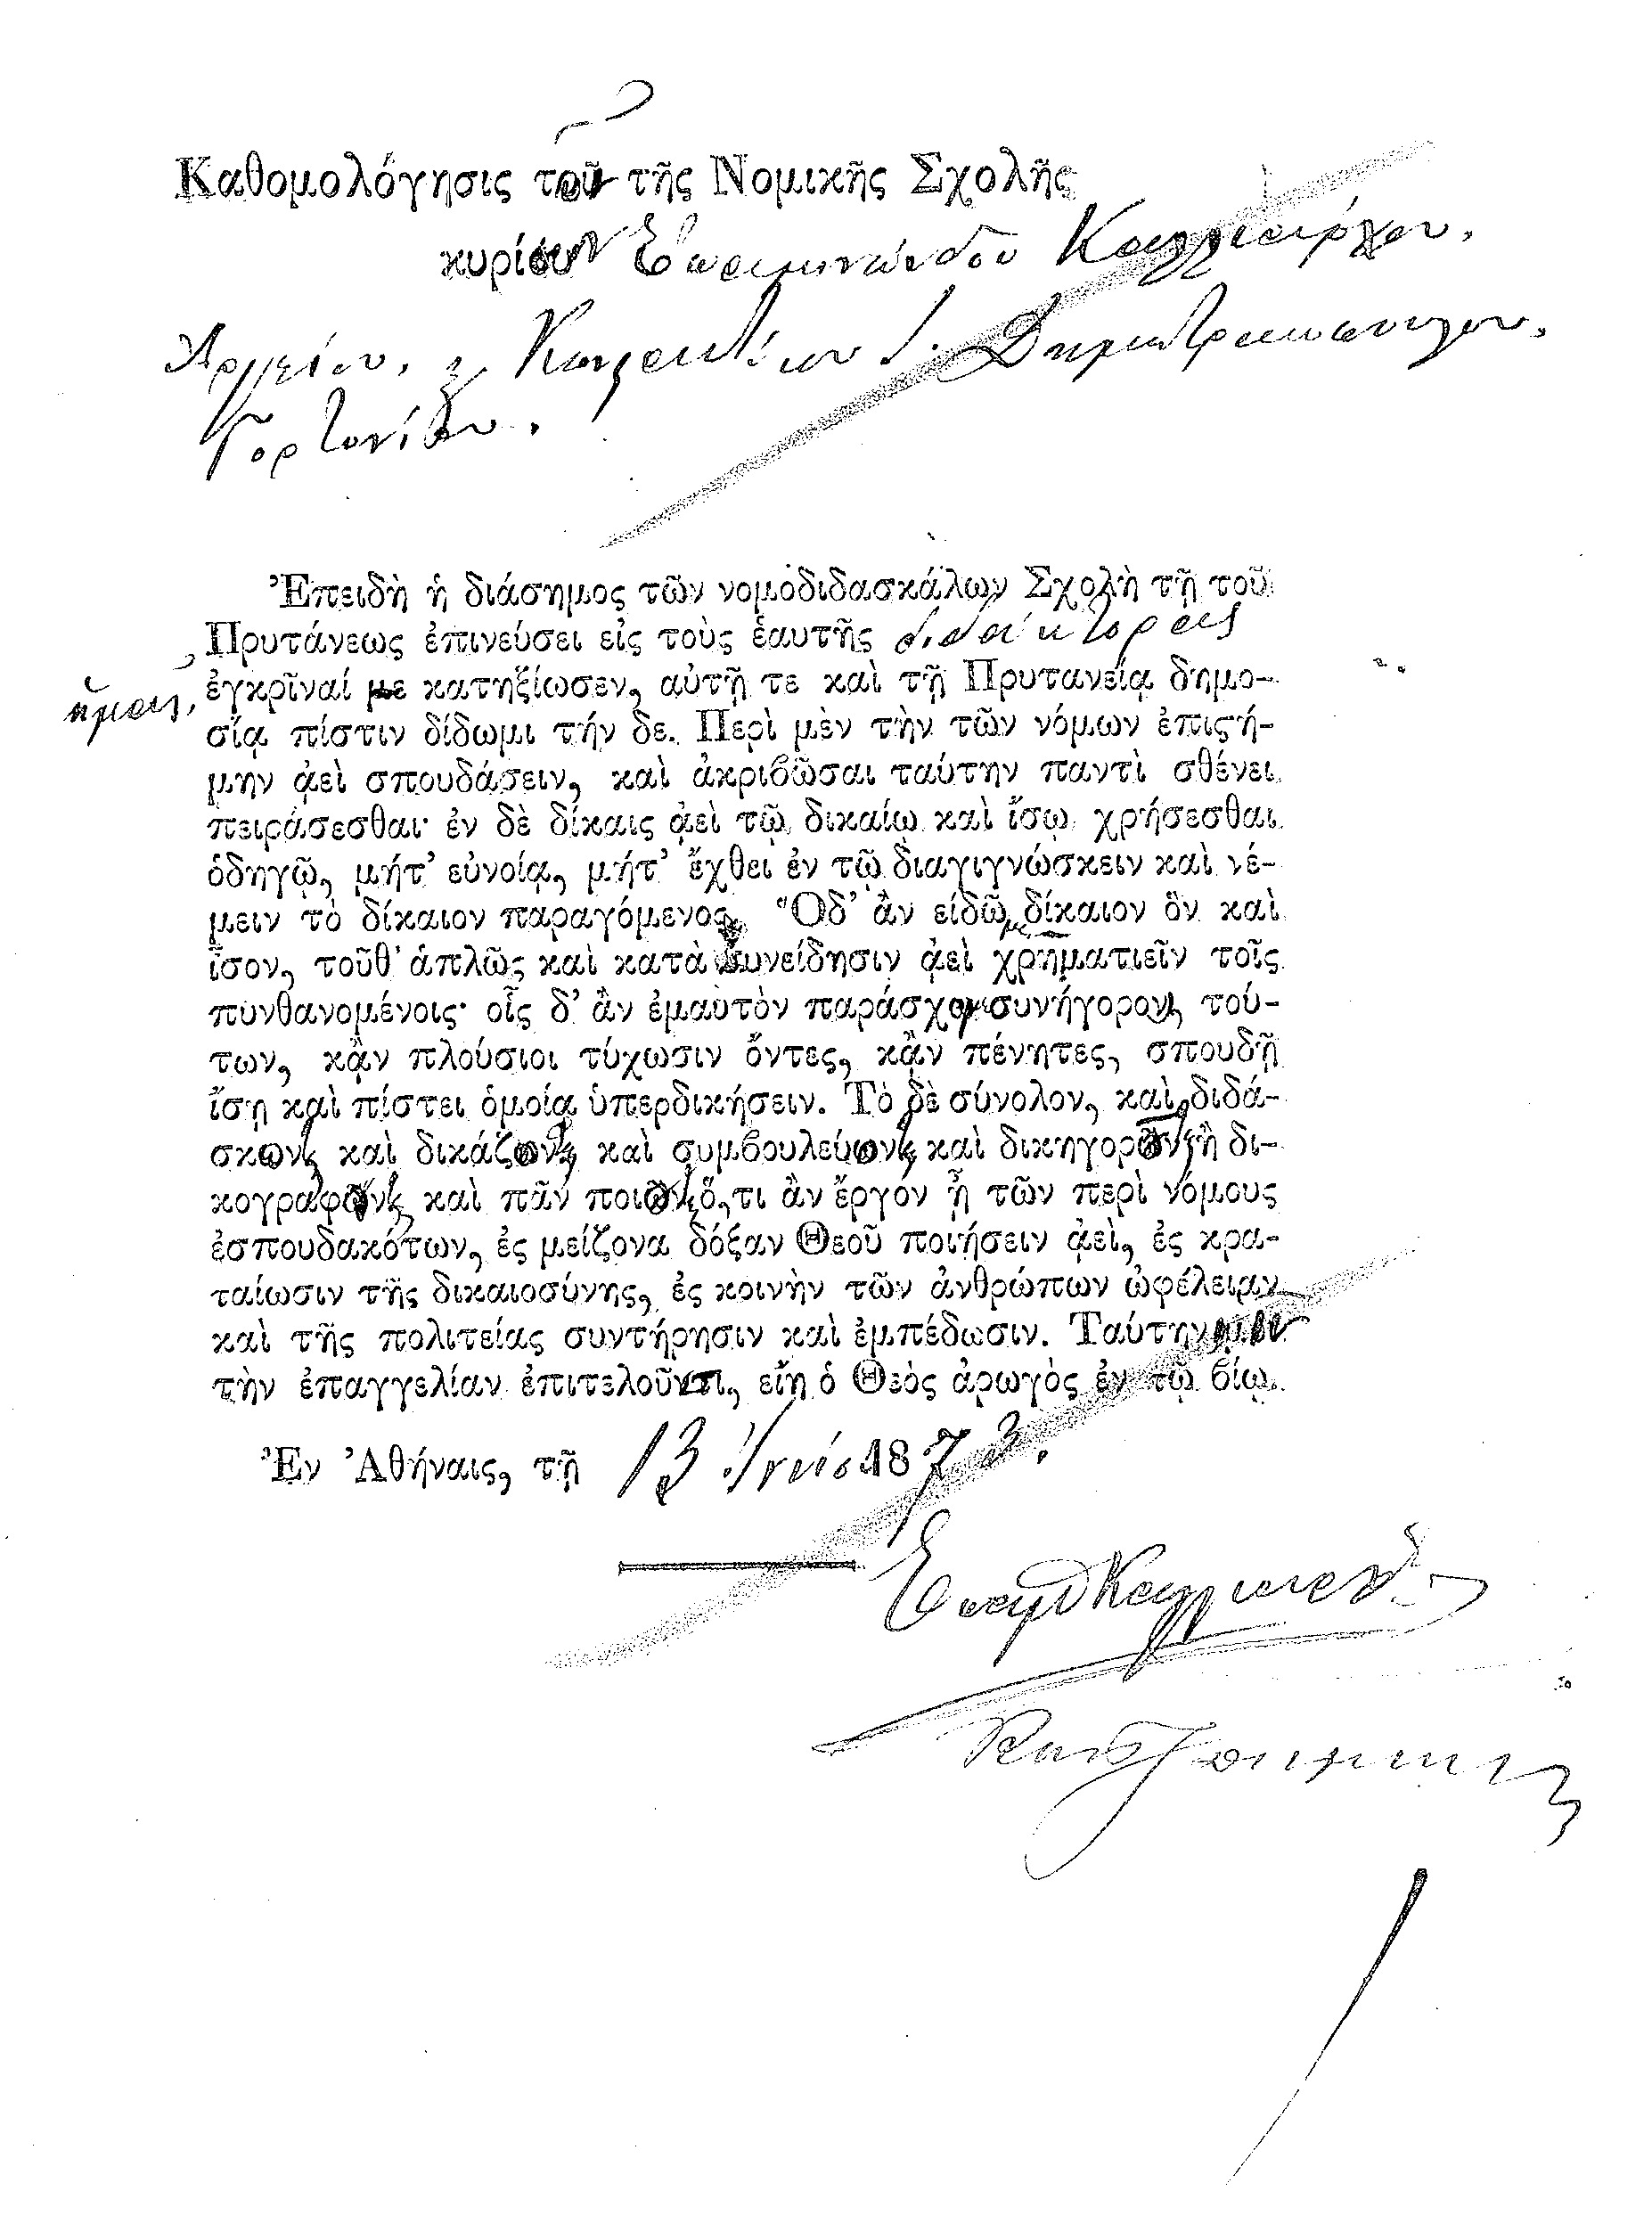 Καθομολόγησις τῶν τῆς Νομικῆς Σχολῆς
κυρίων Ἐπαμινώνδου Καλλιάρχου,
Ἀργείου, Δημητρακοπούλου,
Γορτυνίου.
Ἐπειδὴ ἡ διάσημος τῶν νομοδιδασκάλων Σχολὴ τῇ τοῦ
Πρυτάνεως ἐπινεύσει εἰς τοὺς ἑαυτῆς διδάκτορας
ἡμᾶς, ἐγκρῖναί με κατηξίωσεν, αὐτῇ τε καὶ τῇ Πρυτανείᾳ δημο-
σίᾳ πίστιν δίδωμι τήν δε. Περὶ μὲν τὴν τῶν νόμων ἐπιςή-
μην ᾀεὶ σπουδάσειν, καὶ ἀκριβῶσαι ταύτην παντὶ σθένει
πειράσεσθαι· ἐν δὲ δίκαις ᾀεὶ τῷ δικαίῳ καὶ ἴσῳ χρήσεσθαι
ὁδηγῷ, μήτ' εὐνοίᾳ, μήτ' ἔχθει ἐν τῷ διαγιγνώσκειν καὶ νέ-
μειν τὸ δίκαιον παραγόμενος. Ὃδ' ἂν εἰδῶμεν δίκαιον ὂν καὶ
ἶσον, τοῦθ' ἁπλῶς καὶ κατὰ συνείδησιν ᾀεὶ χρηματιεῖν τοῖς
πυνθανομένοις· οἷς δ' ἂν ἐμαυτὸν παράσχωμεν συνήγορον, τού-
των, κᾂν πλούσιοι τύχωσιν ὄντες, κᾂν πένητες, σπουδῇ
ἴσῃ καὶ πίστει ὁμοίᾳ ὑπερδικήσειν. Τὸ δὲ σύνολον, καὶ διδά-
σκων καὶ δικάζων καὶ συμβουλεύων καὶ δικηγορῶν ἢ δι-
κογραφῶν καὶ πᾶν ποιῶν ὅ,τι ἂν ἔργον ᾖ τῶν περὶ νόμους
ἐσπουδακότων, ἐς μείζονα δόξαν Θεοῦ ποιήσειν ᾀεὶ, ἐς κρα-
ταίωσιν τῆς δικαιοσύνης, ἐς κοινὴν τῶν ἀνθρώπων ὠφέλειαν
καὶ τῆς πολιτείας συντήρησιν καὶ ἐμπέδωσιν. Ταύτην
τὴν ἐπαγγελίαν ἐπιτελοῦντι, εἴη ὁ Θεὸς ἀρωγὸς ἐν τῷ βίῳ.
Ἐν Ἀθήναις, τῇ 13 1873.